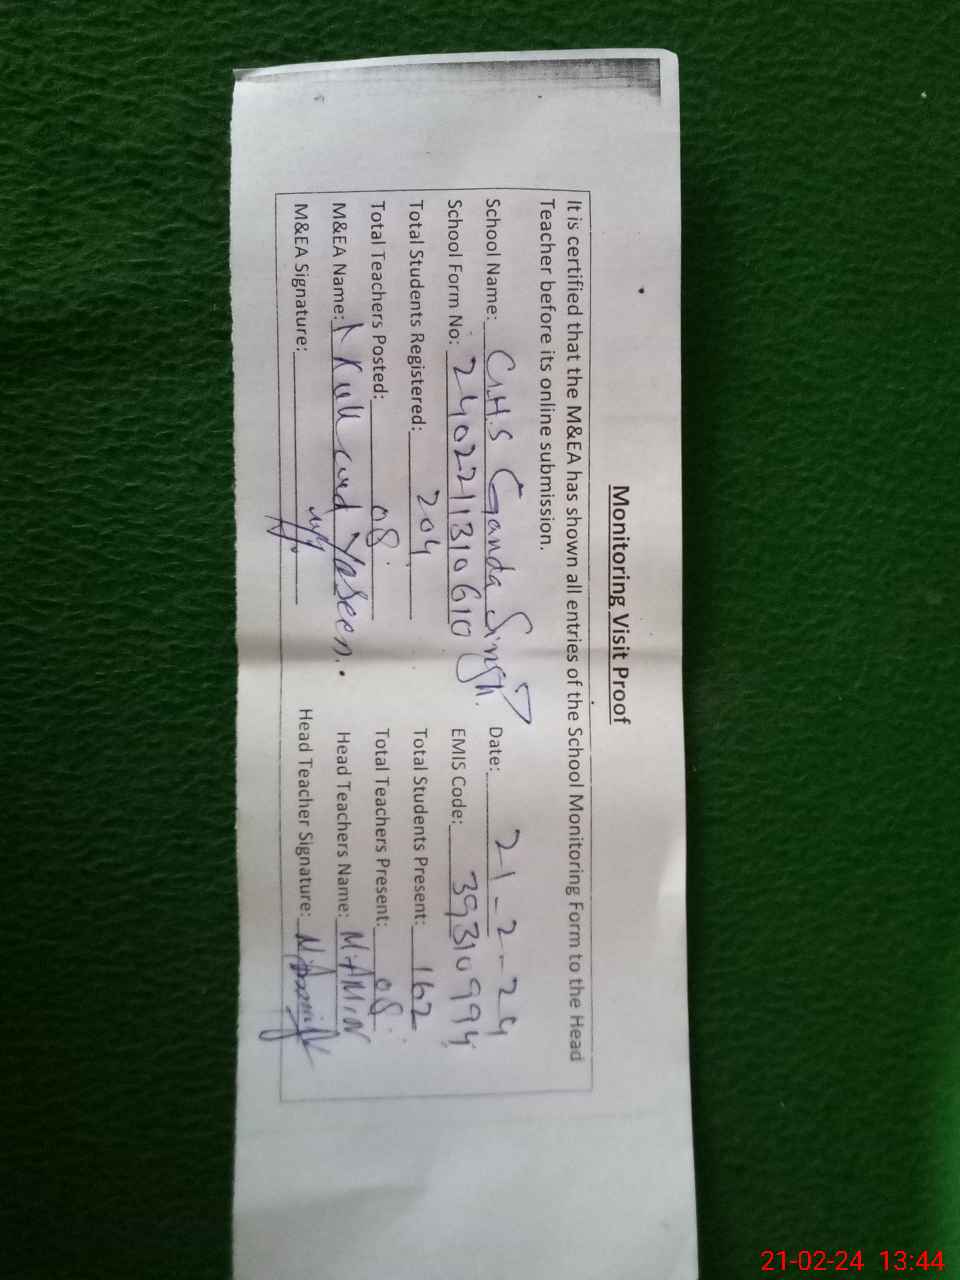 Monitoring Visit Proof
It is certified that the M&EA has shown all entries of the School Monitoring Form to the Head
Teacher before its online submission.
School Name: G.H.S Ganda Singh. Date: 21-2-24
School Form No: 2402211310610 EMIS Code: 39310994
Total Students Registered: 204 Total Students Present: 162
Total Teachers Posted: 08 Total Teachers Present: 08
M&EA Name: Yaseen. Head Teachers Name: M.AMIN
M&EA Signature: Head Teacher Signature:
21-02-24 13:44